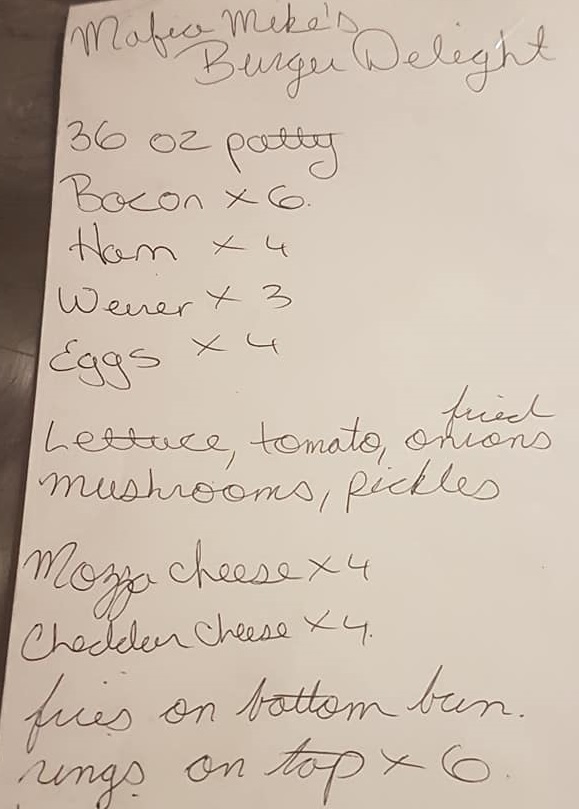 Mafia Mike's
Burger Delight
36 oz patty
Bacon x 6.
Ham x 4
Weiner x 3
Eggs x 4
fried
Lettuce, tomato, onions
mushrooms, pickles
Mozza cheese x 4
Cheddar cheese x 4.
fries on bottom bun.
rings on top x 6.